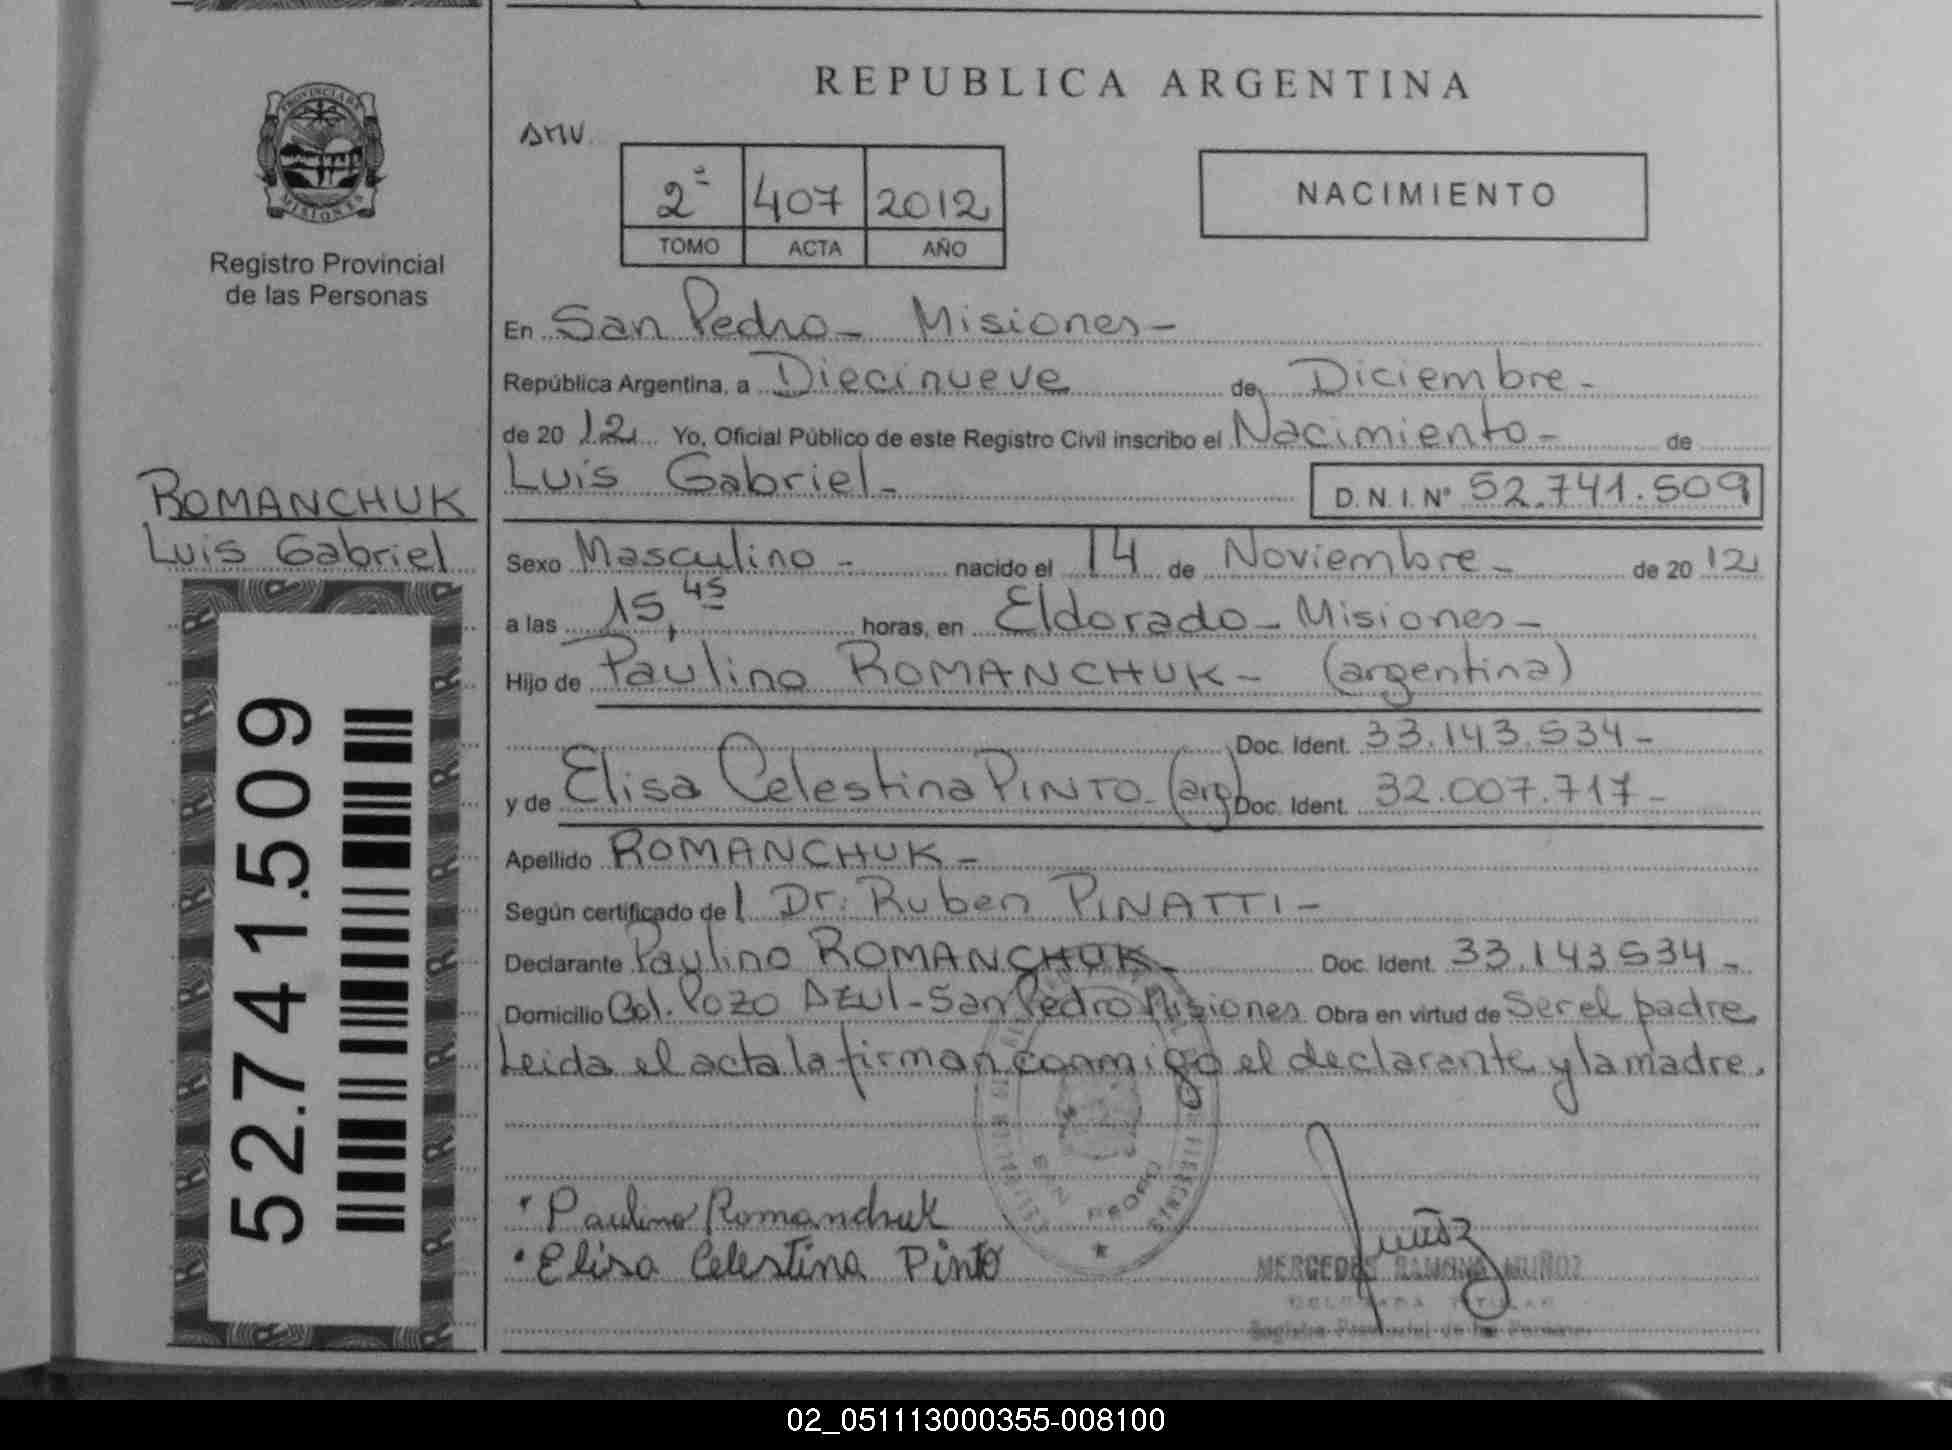 REPUBLICA ARGENTINA
PROVINCIA DE
MISIONES
Registro Provincial
de las Personas
SMV.
2ª 407 2012
TOMO ACTA AÑO
NACIMIENTO
En San Pedro - Misiones -
República Argentina, a Diecinueve de Diciembre -
de 20 12 Yo, Oficial Público de este Registro Civil inscribo el Nacimiento - de
Luis Gabriel - D.N.I. Nº 52.741.509
ROMANCHUK
Luis Gabriel
52.741.509
Sexo Masculino - nacido el 14 de Noviembre - de 20 12
a las 15,45 horas, en Eldorado - Misiones -
Hijo de Paulino ROMANCHUK - (argentina)
Doc. Ident. 33.143.534 -
y de Elisa Celestina PINTO - (arg) Doc. Ident. 32.007.717 -
Apellido ROMANCHUK -
Según certificado del Dr: Ruben PINATTI -
Declarante Paulino ROMANCHUK - Doc. Ident. 33.143534 -
Domicilio Col. Pozo Azul - San Pedro Misiones Obra en virtud de Ser el padre
Leida el acta la firman conmigo el declarante y la madre.
Paulino Romanchuk
Elisa Celestina Pinto
SAN PEDRO
MISIONES
Muñoz
MERCEDES RAMONA MUÑOZ
DELEGADA TITULAR
Registro Provincial de las Personas
02_051113000355-008100